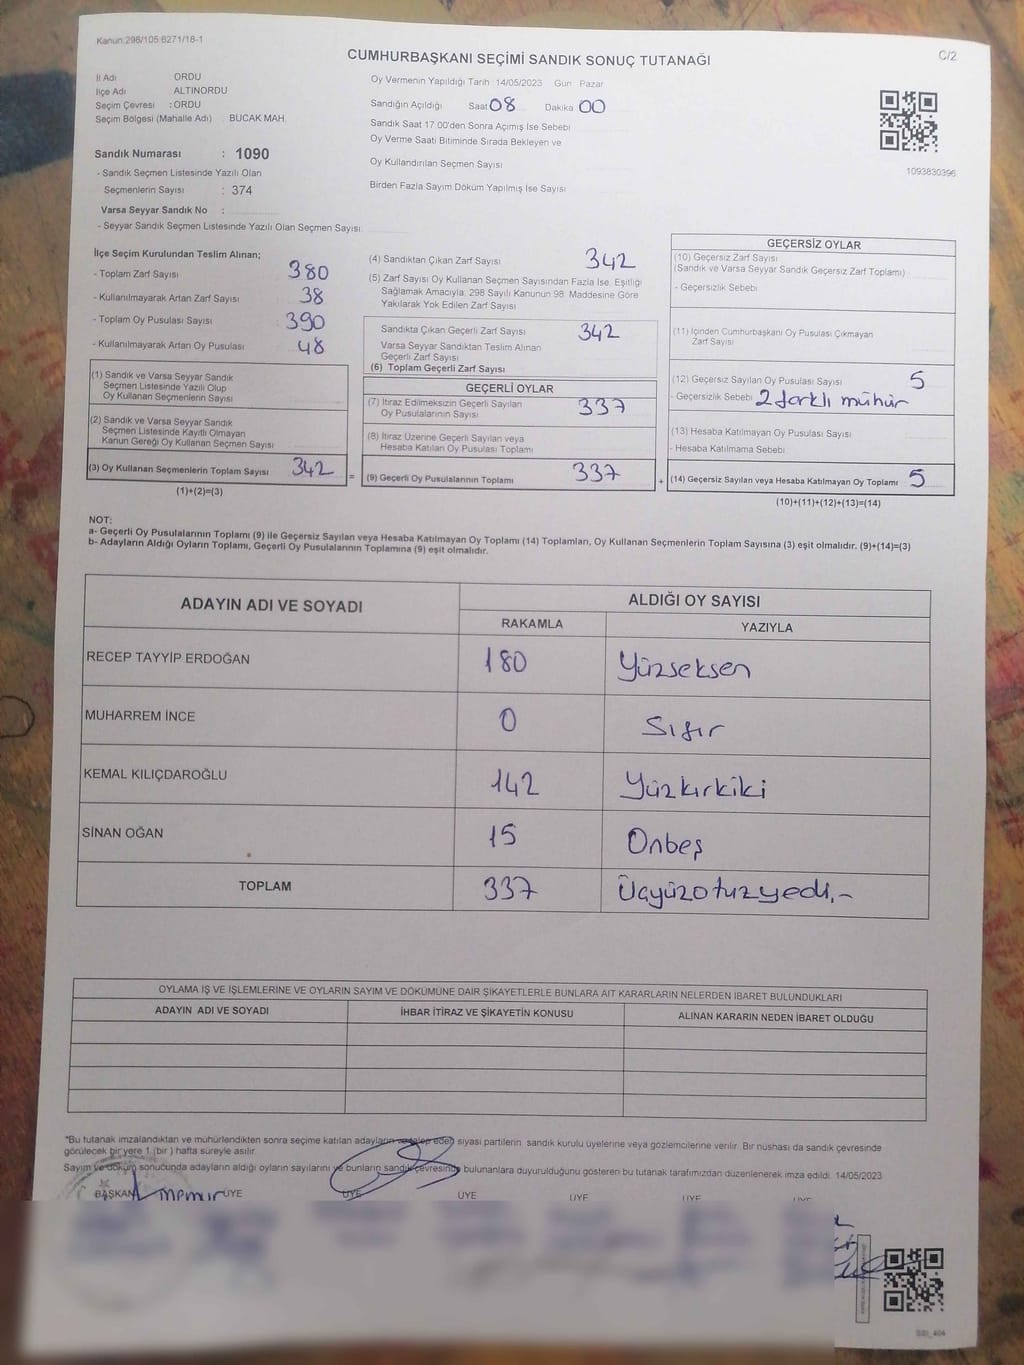 Kanun:298/105 6271/18-1
C/2
CUMHURBAŞKANI SEÇİMİ SANDIK SONUÇ TUTANAĞI
İl Adı ORDU
İlçe Adı ALTINORDU
Seçim Çevresi : ORDU
Seçim Bölgesi (Mahalle Adı) BUCAK MAH.
Sandık Numarası : 1090
- Sandık Seçmen Listesinde Yazılı Olan
Seçmenlerin Sayısı : 374
Varsa Seyyar Sandık No :
- Seyyar Sandık Seçmen Listesinde Yazılı Olan Seçmen Sayısı
Oy Vermenin Yapıldığı Tarih 14/05/2023 Gün Pazar
Sandığın Açıldığı Saat 08 Dakika 00
Sandık Saat 17.00'den Sonra Açımış İse Sebebi
Oy Verme Saati Bitiminde Sırada Bekleyen ve
Oy Kullandırılan Seçmen Sayısı
Birden Fazla Sayım Döküm Yapılmış İse Sayısı
1093830396
İlçe Seçim Kurulundan Teslim Alınan;
- Toplam Zarf Sayısı 380
- Kullanılmayarak Artan Zarf Sayısı 38
- Toplam Oy Pusulası Sayısı 390
- Kullanılmayarak Artan Oy Pusulası 48
(1) Sandık ve Varsa Seyyar Sandık
Seçmen Listesinde Yazılı Olup
Oy Kullanan Seçmenlerin Sayısı
(2) Sandık ve Varsa Seyyar Sandık
Seçmen Listesinde Kayıtlı Olmayan
Kanun Gereği Oy Kullanan Seçmen Sayısı
(3) Oy Kullanan Seçmenlerin Toplam Sayısı 342
(1)+(2)=(3)
=
(4) Sandıktan Çıkan Zarf Sayısı 342
(5) Zarf Sayısı Oy Kullanan Seçmen Sayısından Fazla İse, Eşitliği
Sağlamak Amacıyla, 298 Sayılı Kanunun 98. Maddesine Göre
Yakılarak Yok Edilen Zarf Sayısı
Sandıkta Çıkan Geçerli Zarf Sayısı 342
Varsa Seyyar Sandıktan Teslim Alınan
Geçerli Zarf Sayısı
(6) Toplam Geçerli Zarf Sayısı
GEÇERLİ OYLAR
(7) İtiraz Edilmeksizin Geçerli Sayılan
Oy Pusulalarının Sayısı 337
(8) İtiraz Üzerine Geçerli Sayılan veya
Hesaba Katılan Oy Pusulası Toplamı
(9) Geçerli Oy Pusulalarının Toplamı 337
+
GEÇERSİZ OYLAR
(10) Geçersiz Zarf Sayısı
(Sandık ve Varsa Seyyar Sandık Geçersiz Zarf Toplamı)
- Geçersizlik Sebebi
(11) İçinden Cumhurbaşkanı Oy Pusulası Çıkmayan
Zarf Sayısı
(12) Geçersiz Sayılan Oy Pusulası Sayısı 5
- Geçersizlik Sebebi 2 farklı mühür
(13) Hesaba Katılmayan Oy Pusulası Sayısı
- Hesaba Katılmama Sebebi
(14) Geçersiz Sayılan veya Hesaba Katılmayan Oy Toplamı 5
(10)+(11)+(12)+(13)=(14)
NOT:
a- Geçerli Oy Pusulalarının Toplamı (9) ile Geçersiz Sayılan veya Hesaba Katılmayan Oy Toplamı (14) Toplamları, Oy Kullanan Seçmenlerin Toplam Sayısına (3) eşit olmalıdır. (9)+(14)=(3)
b- Adayların Aldığı Oyların Toplamı, Geçerli Oy Pusulalarının Toplamına (9) eşit olmalıdır.
ADAYIN ADI VE SOYADI
ALDIĞI OY SAYISI
RAKAMLA YAZIYLA
RECEP TAYYİP ERDOĞAN 180 Yüzseksen
MUHARREM İNCE 0 Sıfır
KEMAL KILIÇDAROĞLU 142 Yüzkırkiki
SİNAN OĞAN 15 Onbeş
TOPLAM 337 Üçyüzotuzyedi.~
OYLAMA İŞ VE İŞLEMLERİNE VE OYLARIN SAYIM VE DÖKÜMÜNE DAİR ŞİKAYETLERLE BUNLARA AİT KARARLARIN NELERDEN İBARET BULUNDUKLARI
ADAYIN ADI VE SOYADI İHBAR İTİRAZ VE ŞİKAYETİN KONUSU ALINAN KARARIN NEDEN İBARET OLDUĞU
*Bu tutanak imzalandıktan ve mühürlendikten sonra seçime katılan adayların ve talep eden siyasi partilerin sandık kurulu üyelerine veya gözlemcilerine verilir. Bir nüshası da sandık çevresinde
görülecek bir yere 1 (bir) hafta süreyle asılır.
Sayım ve döküm sonucunda adayların aldığı oyların sayılarını ve bunların sandık çevresinde bulunanlara duyurulduğunu gösteren bu tutanak tarafımızdan düzenlenerek imza edildi. 14/05/2023
BAŞKAN memur ÜYE ÜYE ÜYE ÜYE ÜYE ÜYE